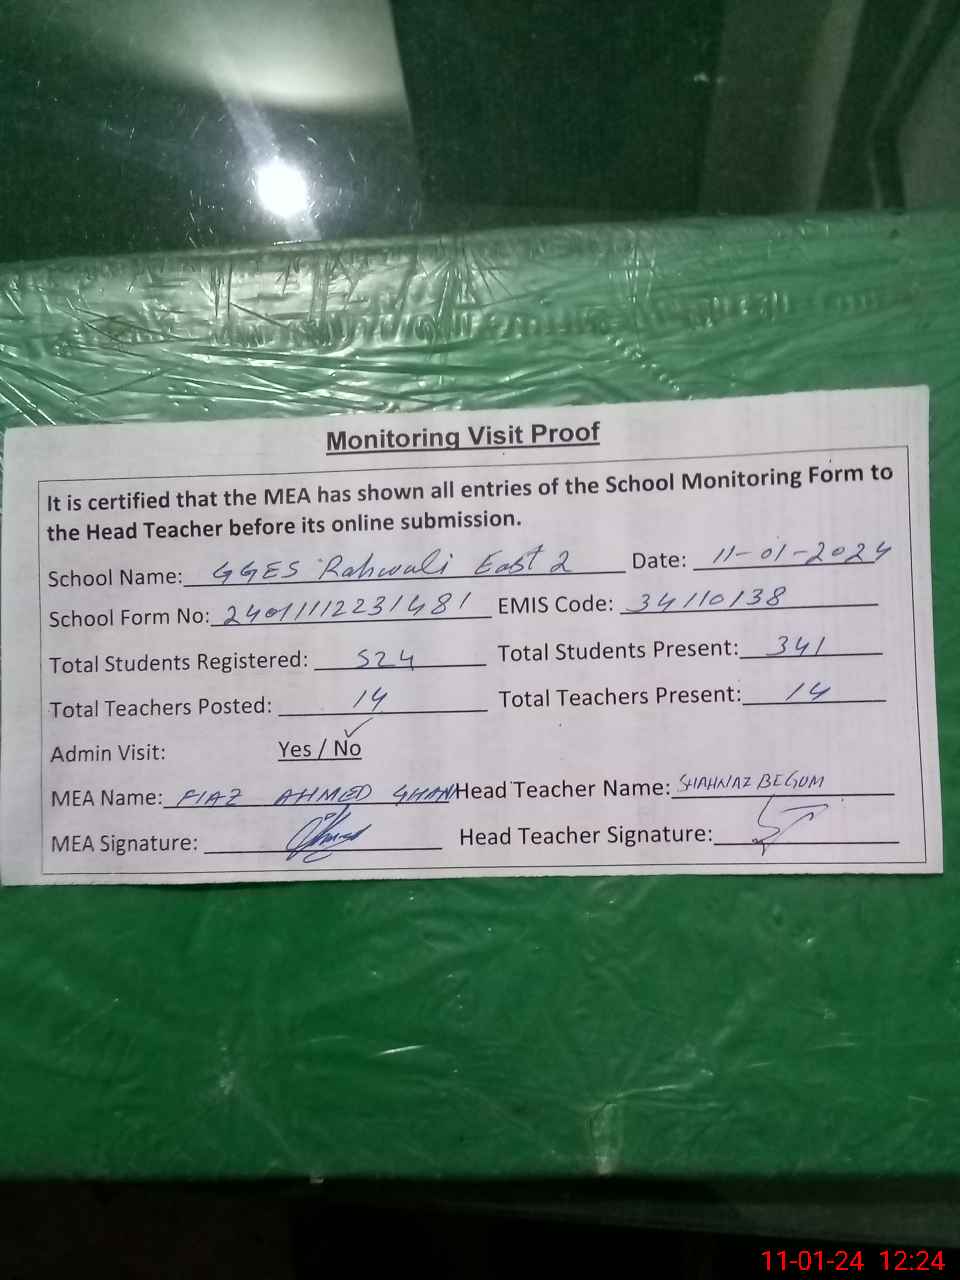 Monitoring Visit Proof
It is certified that the MEA has shown all entries of the School Monitoring Form to
the Head Teacher before its online submission.
School Name: GGES Rahwali East 2 Date: 11-01-2024
School Form No: 24011112231481 EMIS Code: 34110138
Total Students Registered: 524 Total Students Present: 341
Total Teachers Posted: 14 Total Teachers Present: 14
Admin Visit: Yes / No
MEA Name: FIAZ AHMED GHANI Head Teacher Name: SHAHNAZ BEGUM
MEA Signature: Head Teacher Signature:
11-01-24 12:24